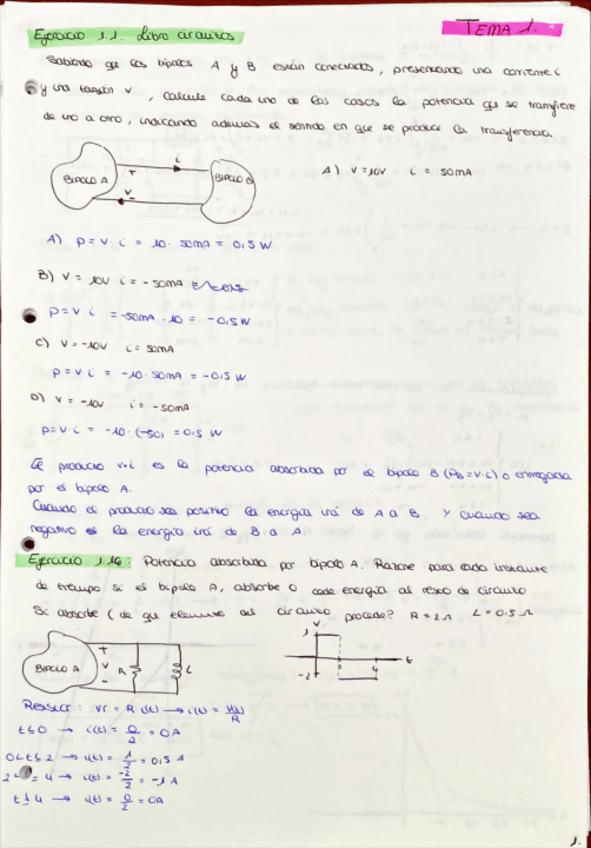 TEMA 1.
Ejercicio 1.1. Libro circuitos
Sabiendo qe los bipolos A y B están conectados, presentando una corriente i
y una tensión v, calcule cada uno de los casos la potencia qe se transfiere
de uno a otro, indicando además el sentido en que se produce la transferencia.
BIPOLO A
i
+
v
-
BIPOLO B
A) V = 10V i = 50mA
A) p = v · i = 10 · 50mA = 0,5 W
B) V = 10V i = -50mA
p = v · i = -50mA · 10 = -0,5 W
C) V = -10V i = 50mA
p = v · i = -10 · 50mA = -0,5 W
D) V = -10V i = -50mA
p = v · i = -10 · (-50) = 0,5 W
El producto v·i es la potencia absorbida por el bipolo B (PB = v·i) o entregada
por el bipolo A.
Cuando el producto sea positivo la energía irá de A a B. Y cuando sea
negativo la energía irá de B a A.
Ejercicio 1.14: Potencia absorbida por bipolo A. Razone para cada instante
de tiempo si el bipolo A, absorbe o cede energía al resto de circuito
Si absorbe ¿ de qe elemento del circuito procede? R = 2Ω L = 0.5 Ω
BIPOLO A
+
v
-
R
L
v
1
-2
2
4
t
Resistor: Vr = R i(t) → i(t) = V(t)/R
t ≤ 0 → i(t) = 0/2 = 0A
0 < t ≤ 2 → i(t) = 1/2 = 0,5 A
4 → i(t) = -2/2 = -1 A
4 → i(t) = 0/2 = 0A
1.